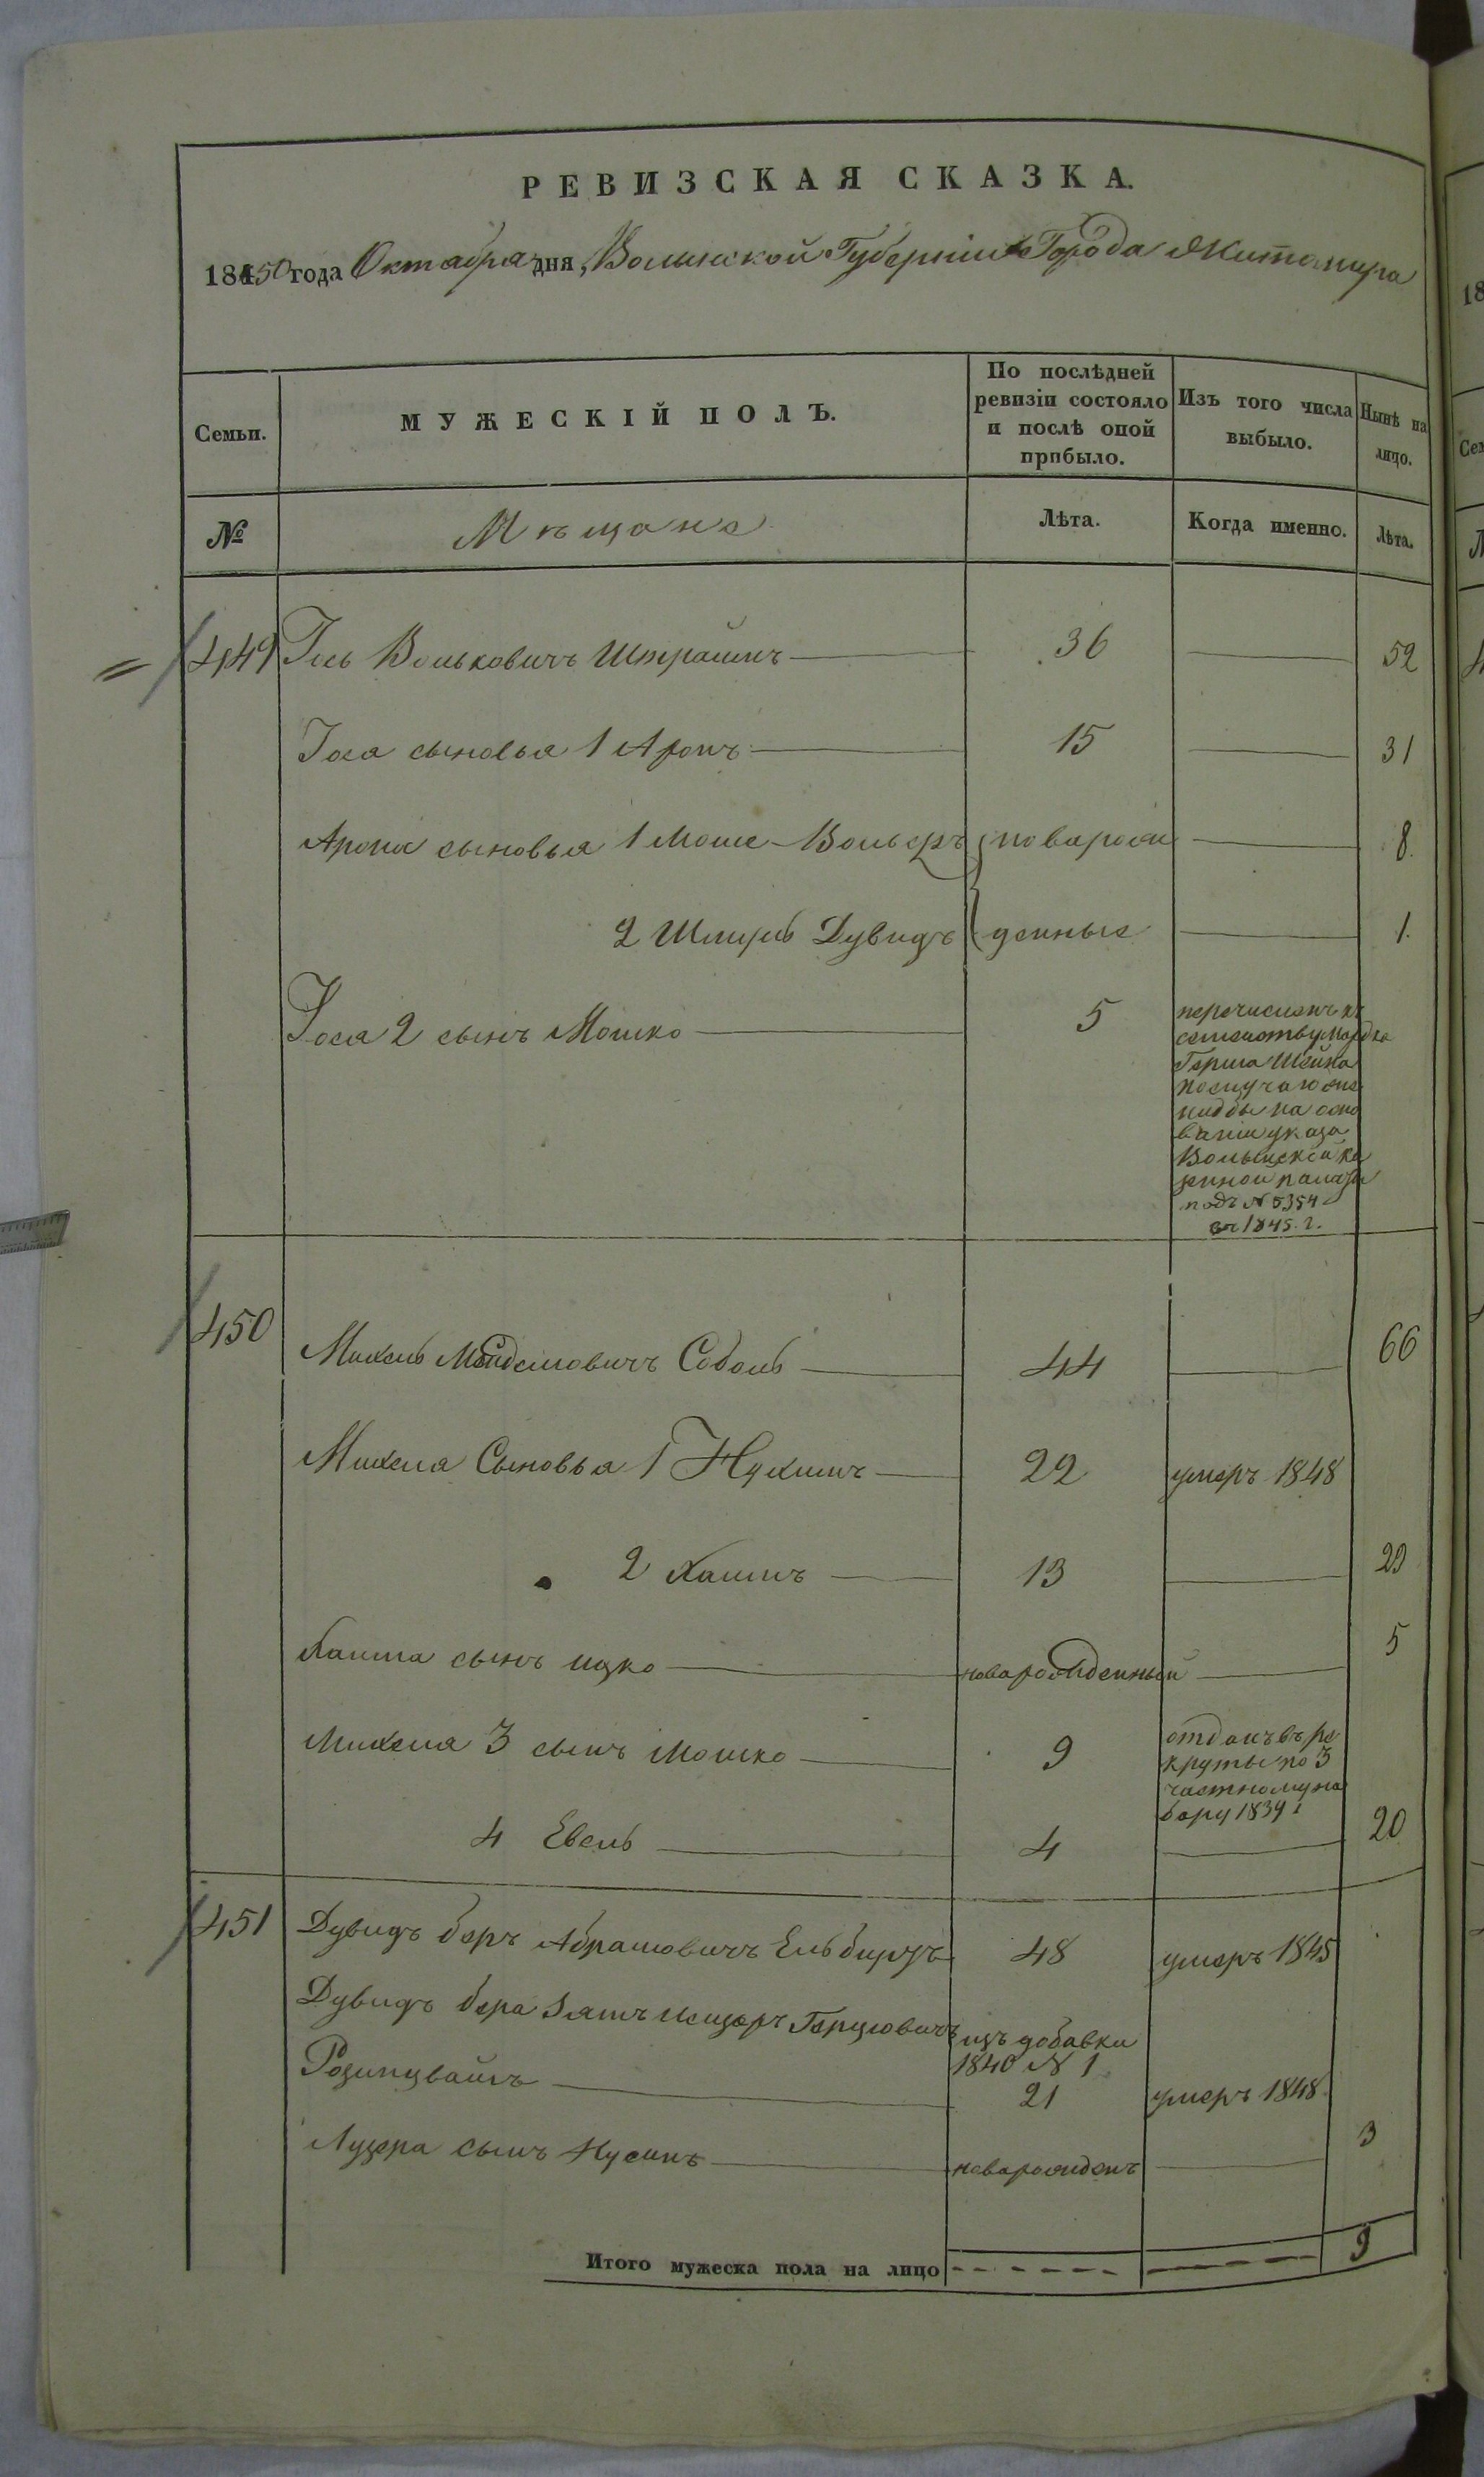 РЕВИЗСКАЯ СКАЗКА.
1850 года Октября дня, Волынской Губерніи Города Житомира
Семьи.
МУЖЕСКІЙ ПОЛЪ.
По послѣдней
ревизіи состояло
и послѣ оной
прибыло.
Изъ того числа
выбыло.
Нынѣ на
лицо.
№
Мѣщане
Лѣта.
Когда именно.
Лѣта.
449 Іось Вольковичъ 36 52
Іоса сыновья 1 Аронъ 15 31
Арона сыновья 1 Моше-Вольфъ новорож 8
2 Шлиумъ Дувидъ денные 1.
Іоса 2 сынъ Мошко 5
перечисленъ къ
семейству Мордка
Герша Шейна
по случаю оши
ибки на осно
ваніи указа
Волынской ка
зенной палаты
подъ № 5354
въ 1845. г.
450 Михель Мендель­овичъ Соболь 44 66
Михеля Сыновья 1 Нухимъ 22 умеръ 1848
2 Хаимъ 13 29
Хаима сынъ Ицко новарожденный 5
Михеля 3 сынъ Мошко 9
отданъ въ ре
круты по 3
частному на
бору 1839 г
4 Евель 4 20
451 Дувидъ беръ Абрамовичъ Ельбиргъ 48 умеръ 1845
Дувидъ бера зятъ Герцовичъ изъ добавки
1840 № 1
Розинцвайгъ 21 умеръ 1848
Лузера сынъ Нусинъ новарожденъ 3
Итого мужеска пола на лицо 9